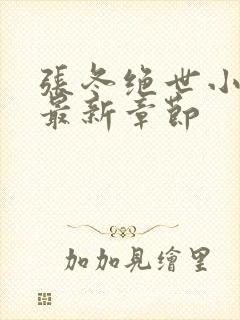 張冬绝世小
最新章節
加加見繪里